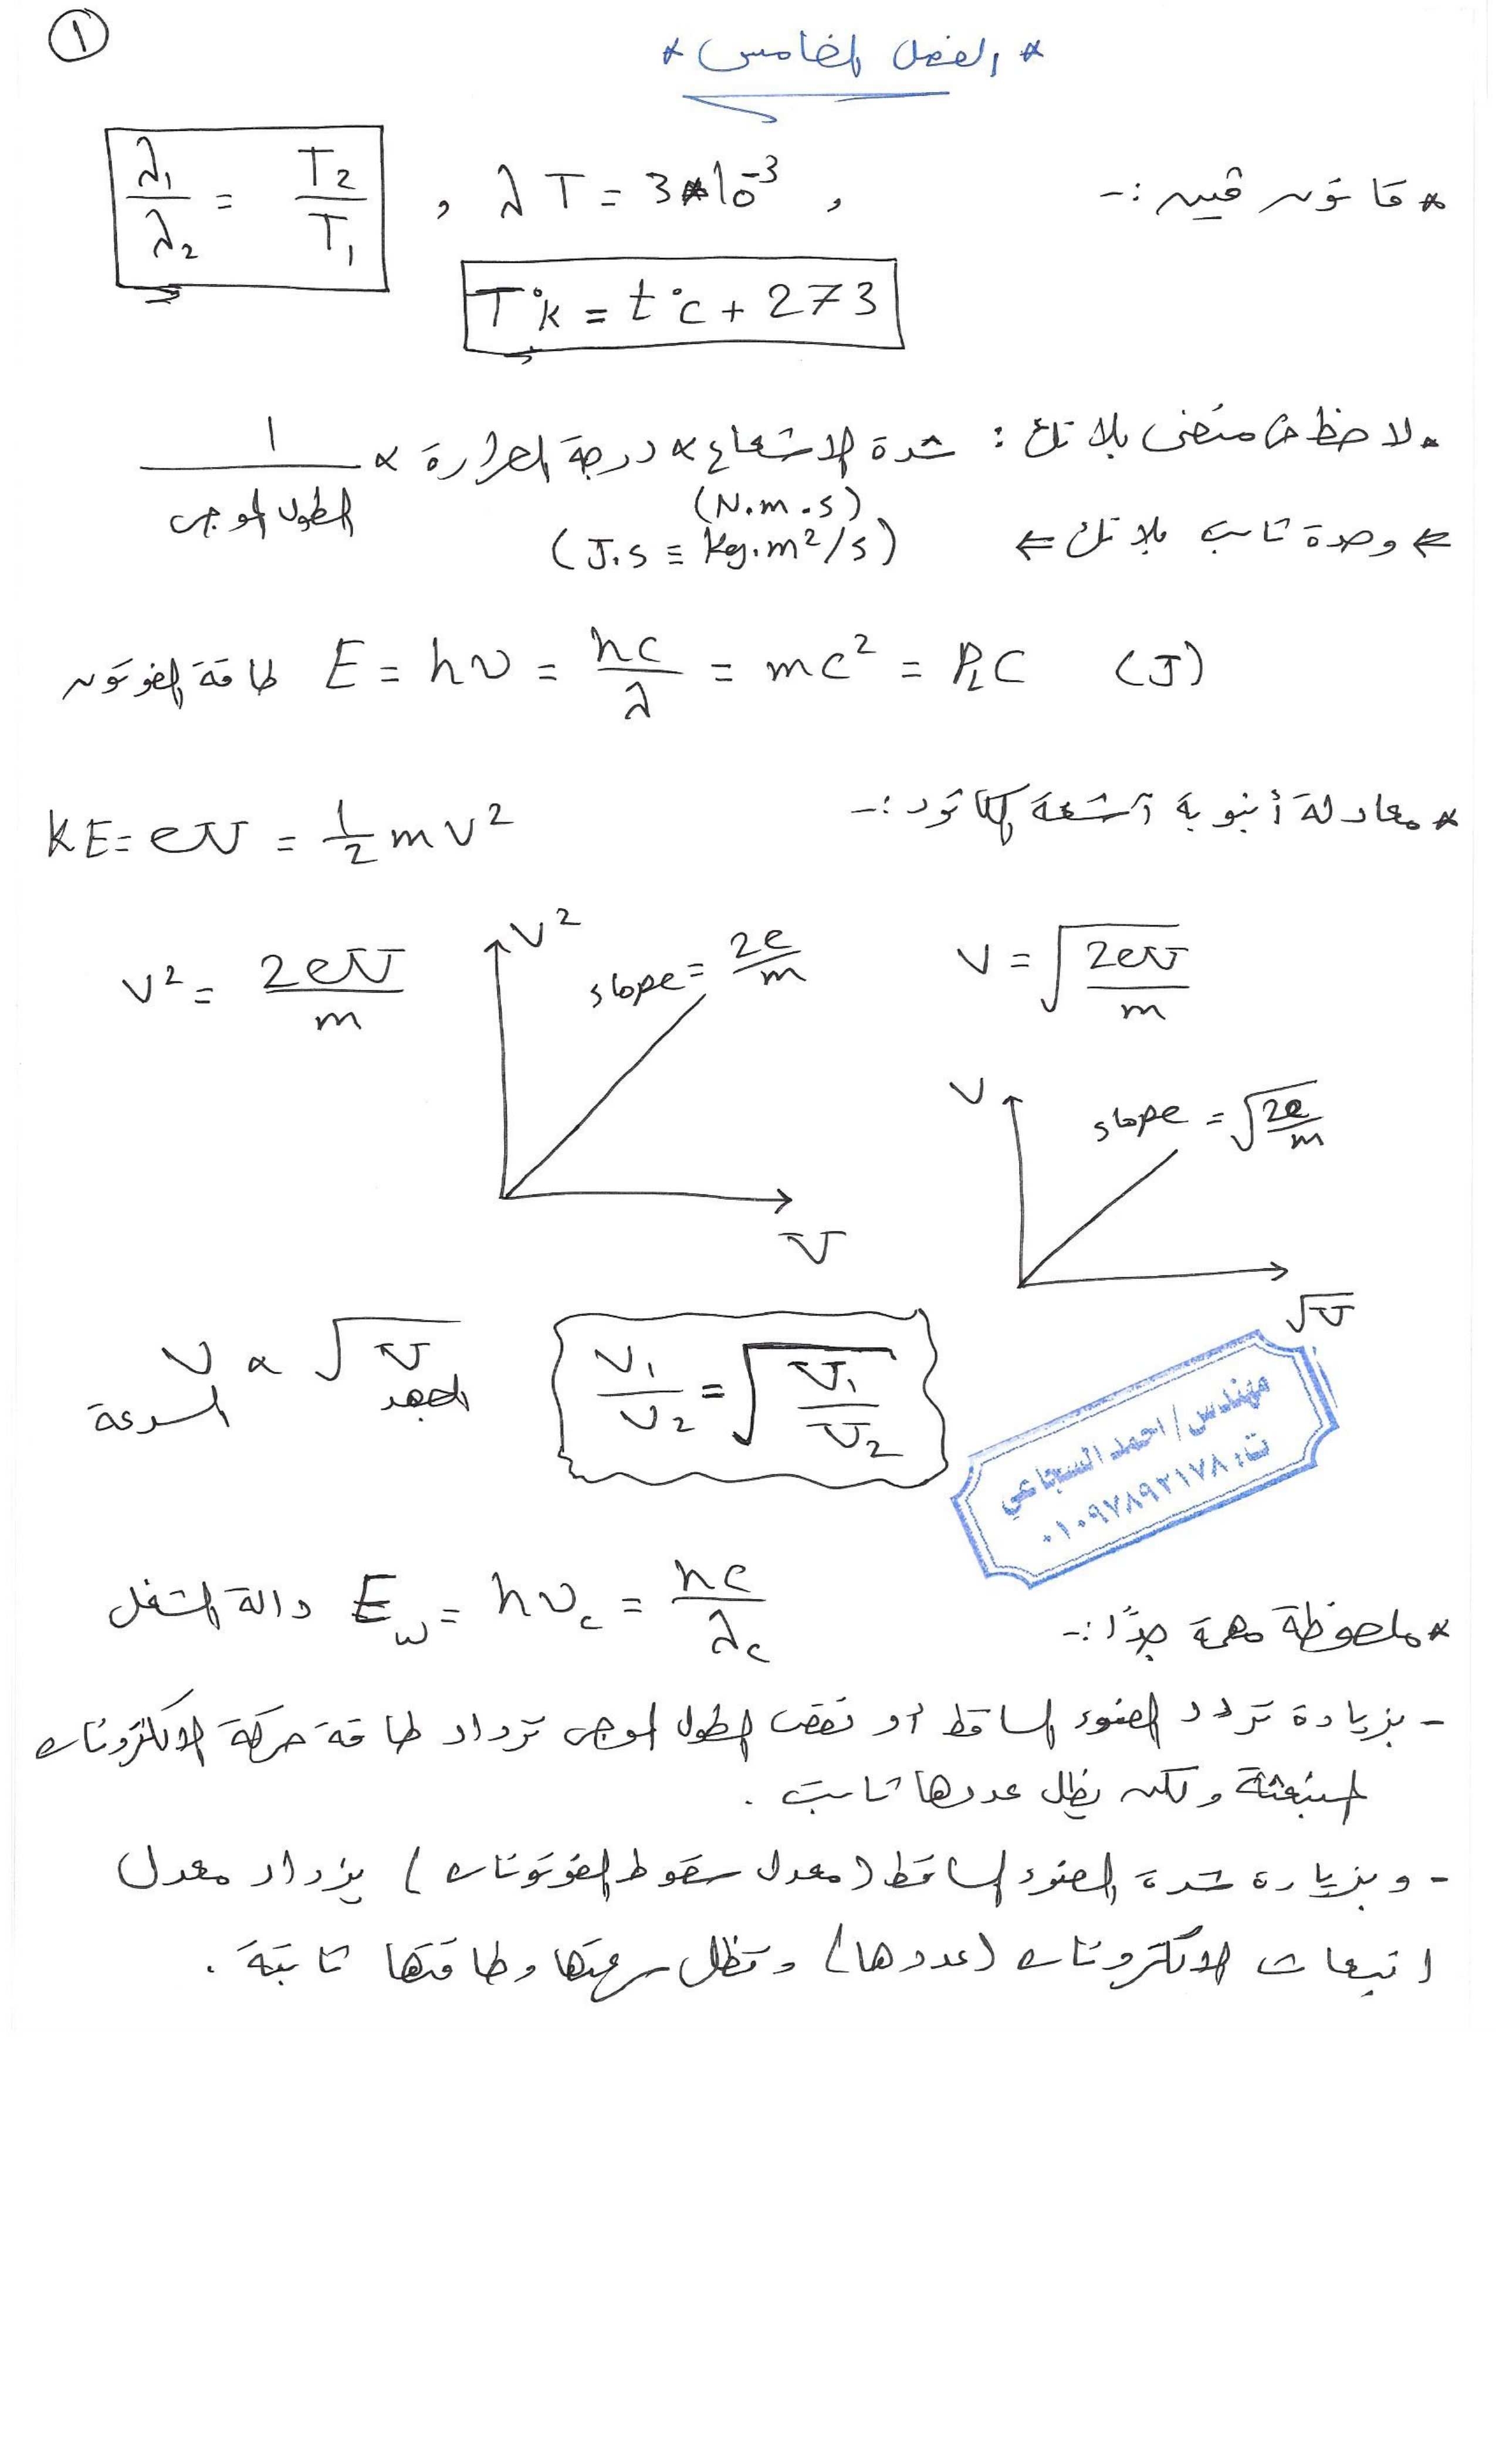 ١
* الفصل الخامس *
* قانون فين :-
λ₁/λ₂ = T₂/T₁ , λT = 3*10⁻³ ,
T°K = t°C + 273
* لاحظ من منحنى بلانك : شدة الاشعاع ∝ درجة الحرارة ∝ 1/الطول الموجى
(N.m.s)
وحدة ثابت بلانك ⇐ (J.s ≡ kg.m²/s)
طاقة الفوتون E = hν = hc/λ = mc² = P_L C (J)
* معادلة أنبوبة أشعة الكاثود :-
KE = eV = 1/2 mv²
v² = 2eV/m
v²
slope = 2e/m
V
v = √(2eV/m)
v
slope = √(2e/m)
√V
v ∝ √V
السرعة الجهد
v₁/v₂ = √(V₁/V₂)
مهندس / احمد السجاعي
ت: ٠١٠٩٧٨٩٢١٧٨
دالة الشغل E_w = hν_c = hc/λ_c
* ملحوظة مهمة جدًا :-
- بزيادة تردد الضوء الساقط أو نقص الطول الموجى تزداد طاقة حركة الالكترونات
المنبعثة ولكن يظل عددها ثابت .
- وبزيادة شدة الضوء الساقط (معدل سقوط الفوتونات) يزداد معدل
انبعاث الالكترونات (عددها) وتظل سرعتها وطاقتها ثابتة .